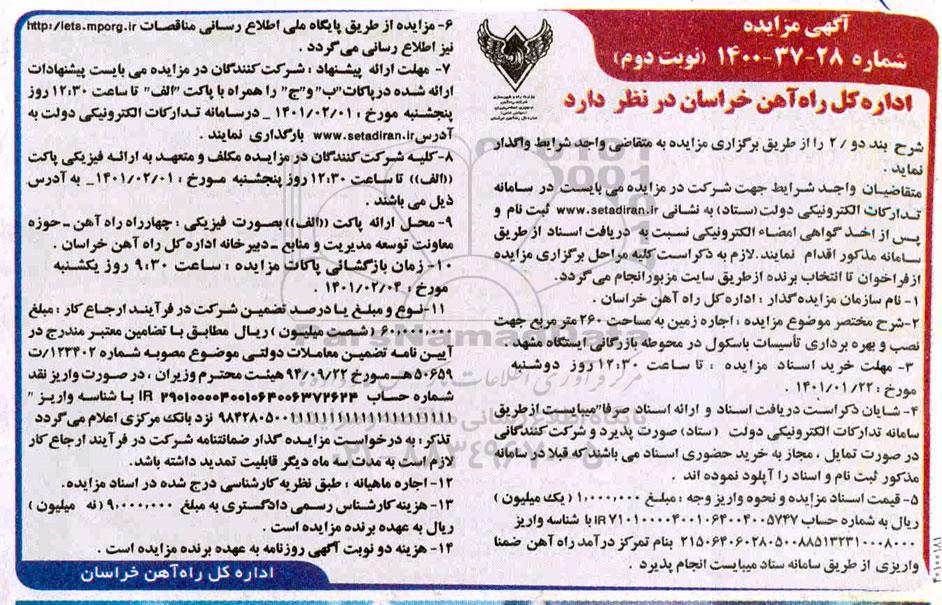 آگهی مزایده
شماره ۲۸-۳۷-۱۴۰۰ (نوبت دوم)
اداره کل راه آهن خراسان در نظر دارد
شرح بند دو /۲ را از طریق برگزاری مزایده به متقاضی واجد شرایط واگذار
نماید .
متقاضیان واجد شرایط جهت شرکت در مزایده می بایست در سامانه
تدارکات الکترونیکی دولت(ستاد) به نشانی www.setadiran.ir ثبت نام و
پس از اخذ گواهی امضاء الکترونیکی نسبت به دریافت اسناد از طریق
سامانه مذکور اقدام نمایند.لازم به ذکراست کلیه مراحل برگزاری مزایده
از فراخوان تا انتخاب برنده ازطریق سایت مزبورانجام می گردد.
۱- نام سازمان مزایده گذار : اداره کل راه آهن خراسان .
۲-شرح مختصر موضوع مزایده : اجاره زمین به مساحت ۲۶۰ متر مربع جهت
نصب و بهره برداری تأسیسات باسکول در محوطه بازرگانی ایستگاه مشهد.
۳- مهلت خرید اسناد مزایده : تا ساعت ۱۲:۳۰ روز دوشنبه
مورخ : ۱۴۰۱/۰۱/۲۲ .
۴- شایان ذکراست دریافت اسناد و ارائه اسناد صرفا"میبایست ازطریق
سامانه تدارکات الکترونیکی دولت (ستاد) صورت پذیرد و شرکت کنندگانی
در صورت تمایل ، مجاز به خرید حضوری اسناد می باشند که قبلا در سامانه
مذکور ثبت نام و اسناد را آپلود نموده اند .
۵- قیمت اسناد مزایده و نحوه واریز وجه : مبلغ ۱,۰۰۰,۰۰۰ ( یک میلیون )
ریال به شماره حساب IR ۷۱۰۱۰۰۰۰۴۰۰۱۰۶۴۰۰۴۰۰۵۷۴۷ با شناسه واریز
۲۱۵۰۶۴۰۶۰۲۸۰۵۰۰۸۸۵۱۳۲۳۱۰۰۰۸۰۰۰ بنام تمرکز درآمد راه آهن ضمنا
واریزی از طریق سامانه ستاد میبایست انجام پذیرد .
۶- مزایده از طریق پایگاه ملی اطلاع رسانی مناقصات http:/iets.mporg.ir
نیز اطلاع رسانی می گردد .
۷- مهلت ارائه پیشنهاد : شرکت کنندگان در مزایده می بایست پیشنهادات
ارائه شده درپاکات"ب" و"ج" را همراه با پاکت "الف" تا ساعت ۱۲:۳۰ روز
پنجشنبه مورخ : ۱۴۰۱/۰۲/۰۱ _ درسامانه تدارکات الکترونیکی دولت به
آدرس www.setadiran.ir بارگذاری نمایند .
۸-کلیه شرکت کنندگان در مزایده مکلف و متعهد به ارائه فیزیکی پاکت
((الف)) تا ساعت ۱۲:۳۰ روز پنجشنبه مورخ : ۱۴۰۱/۰۲/۰۱_ به آدرس
ذیل می باشند .
۹- محل ارائه پاکت ((الف)) بصورت فیزیکی : چهارراه راه آهن -حوزه
معاونت توسعه مدیریت و منابع -دبیرخانه اداره کل راه آهن خراسان .
۱۰- زمان بازگشائی پاکات مزایده : ساعت ۹:۳۰ روز یکشنبه
مورخ : ۱۴۰۱/۰۲/۰۴ .
۱۱-نوع و مبلغ یا درصد تضمین شرکت در فرآیند ارجاع کار : مبلغ
۶۰۰۰۰۰۰۰ ( شصت میلیون ) ریال مطابق با تضامین معتبر مندرج در
آیین نامه تضمین معاملات دولتی موضوع مصوبه شماره ۱۲۳۴۰۲/ت
۵۰۶۵۹ هـ مورخ ۹۴/۰۹/۲۲ هیئت محترم وزیران ، در صورت واریز نقد
شماره حساب IR ۲۹۰۱۰۰۰۰۴۰۰۱۰۶۴۰۰۶۳۷۲۶۲۴ با شناسه واریز "
نزد بانک مرکزی اعلام می گردد
تذکر : به درخواست مزایده گذار ضمانتنامه شرکت در فرآیند ارجاع کار
لازم است به مدت سه ماه دیگر قابلیت تمدید داشته باشد.
۱۲- اجاره ماهیانه : طبق نظریه کارشناسی درج شده در اسناد مزایده.
۱۳- هزینه کارشناس رسمی دادگستری به مبلغ ۹,۰۰۰,۰۰۰ (نه میلیون )
ریال به عهده برنده مزایده است .
۱۴- هزینه دو نوبت آگهی روزنامه به عهده برنده مزایده است .
اداره کل راه آهن خراسان
۴۰۱۰۰۱۸۱
ParsNamadData